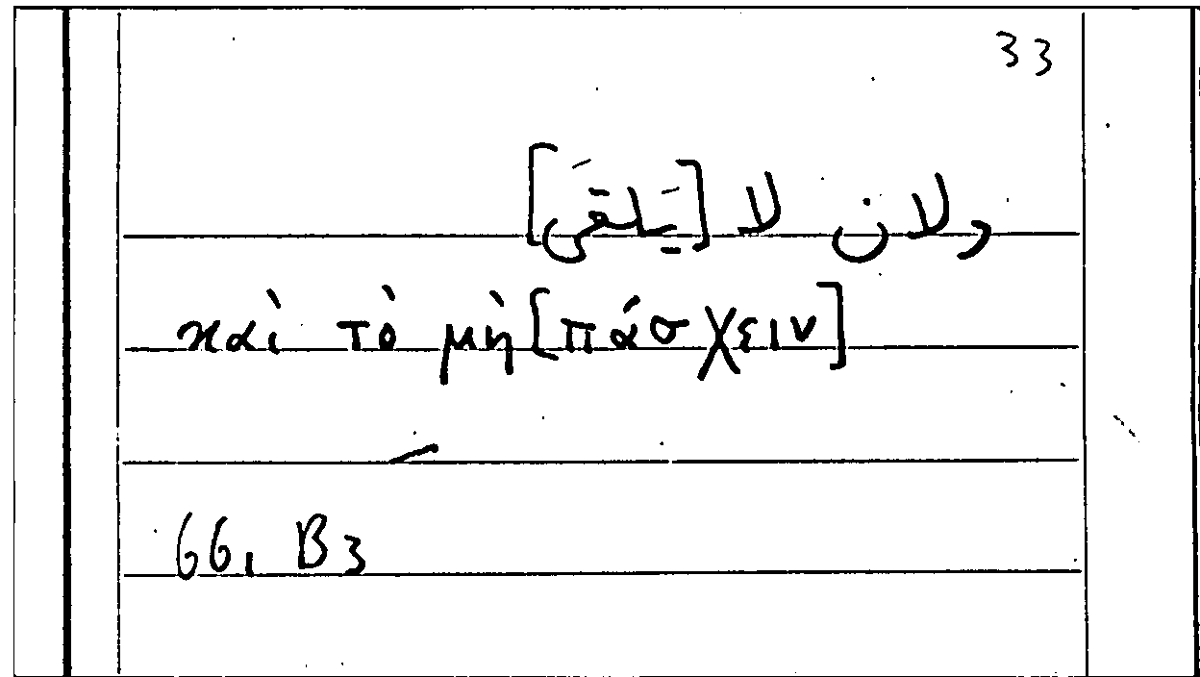 33
ولان لا [يَلقَىَ]
καὶ τὸ μὴ [πάσχειν]
66, B3